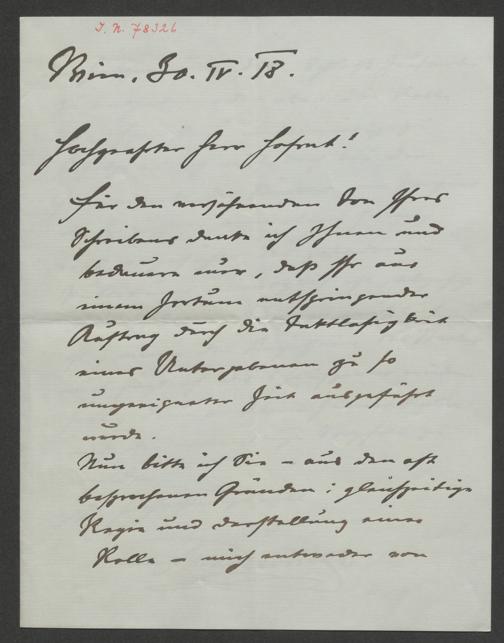 I. N. 78326
Wien, 30. IV. 18.
Hochgeehrter Herr Hofrat!
Für den versöhnenden Ton Ihres
Schreibens danke ich Ihnen und
bedauere nur, daß Ihr aus
einem Irrtum entspringender
Auftrag durch die Taktlosigkeit
eines Untergebenen zu so
ungeeigneter Zeit ausgeführt
wurde.
Nun bitte ich Sie – aus den oft
besprochenen Gründen: gleichzeitige
Regie und Darstellung einer
Rolle – mich entweder von